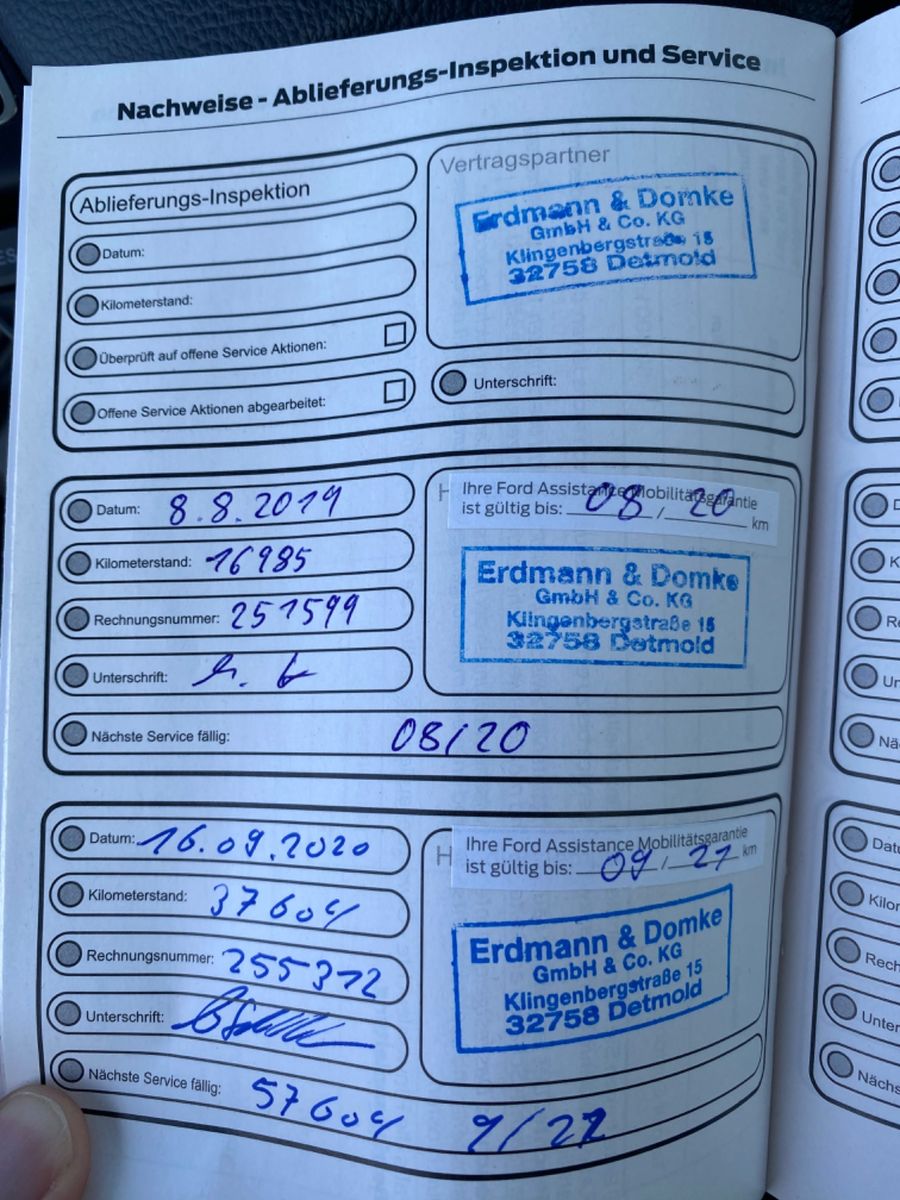 Nachweise - Ablieferungs-Inspektion und Service
Ablieferungs-Inspektion
Datum:
Kilometerstand:
Überprüft auf offene Service Aktionen:
Offene Service Aktionen abgearbeitet:
Vertragspartner
Erdmann & Domke
GmbH & Co. KG
Klingenbergstraße 15
32758 Detmold
Unterschrift:
Datum: 8.8.2019
Kilometerstand: 16985
Rechnungsnummer: 251599
Unterschrift:
Ihre Ford Assistance Mobilitätsgarantie
ist gültig bis: 08 / 20 km
Erdmann & Domke
GmbH & Co. KG
Klingenbergstraße 15
32758 Detmold
Nächste Service fällig: 08/20
Datum: 16.09.2020
Kilometerstand: 37604
Rechnungsnummer: 255312
Unterschrift:
Ihre Ford Assistance Mobilitätsgarantie
ist gültig bis: 09 / 21 km
Erdmann & Domke
GmbH & Co. KG
Klingenbergstraße 15
32758 Detmold
Nächste Service fällig: 57604